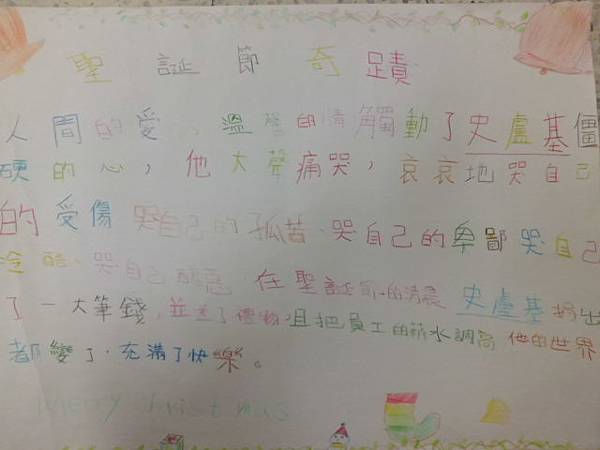 聖誕節奇蹟
人間的受、溫馨的情觸動了史盧基僵
硬的心，他大聲痛哭，哀哀地哭自己
的受傷哭自己的孤苦、哭自己的卑鄙哭自己
冷酷、哭自己醜惡，在聖誕節的清晨史盧基捐出
了一大筆錢，並送了禮物，且把員工的薪水調高他的世界
都變了，充滿了快樂。
merry christmas